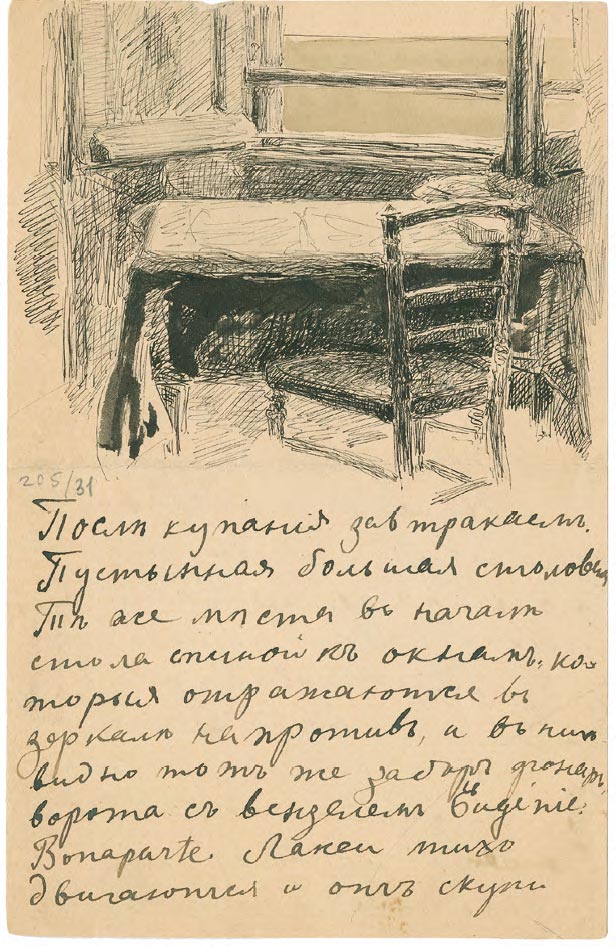 205/31
Послѣ купанія завтракаемъ.
Пустынная большая столовая
Тѣ же мѣста въ началѣ
стола спиной къ окнамъ, ко-
торыя отражаются въ
зеркалѣ напротивъ, и въ нихъ
видно тотъ же заборъ фонарь,
ворота съ вензелемъ Eugénie
Bonaparte. Лакеи тихо
двигаются и отъ скуки